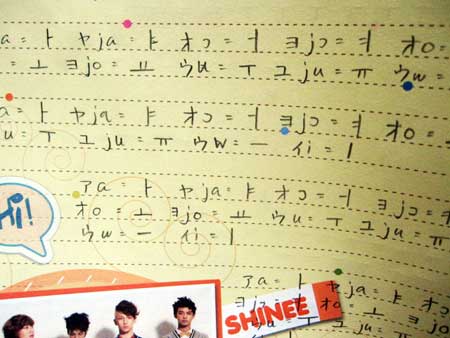 a = ㅏ ヤja = ㅑ オɔ = ㅓ ヨjɔ = ㅕ オo =
= ㅗ ヨjo = ㅛ ウu = ㅜ ユju = ㅠ ウw =
a = ㅏ ヤja = ㅑ オɔ = ㅓ ヨjɔ = ㅕ オo =
u = ㅜ ユju = ㅠ ウw = ㅡ イi = ㅣ
アa = ㅏ ヤja = ㅑ オɔ = ㅓ ヨjɔ =
オo = ㅗ ヨjo = ㅛ ウu = ㅜ ユju = ㅠ
ウw = ㅡ イi = ㅣ
アa = ㅏ ヤja = ㅑ オ
オo = ㅗ
SHINEE